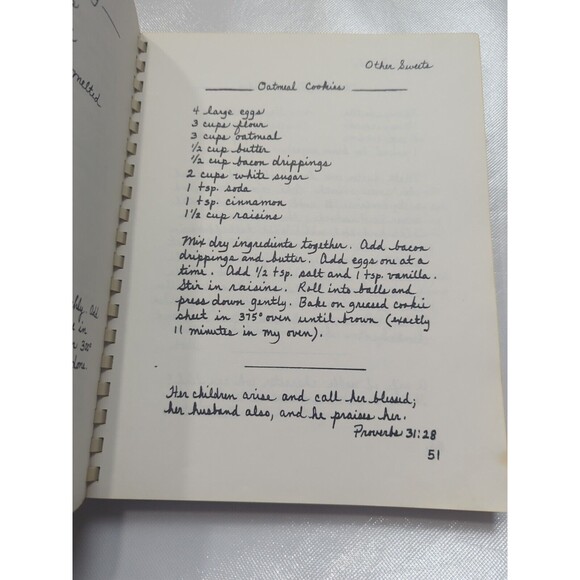 melted
Other Sweets
Oatmeal Cookies
4 large eggs
3 cups flour
3 cups oatmeal
1/2 cup butter
1/2 cup bacon drippings
2 cups white sugar
1 tsp. soda
1 tsp. cinnamon
1 1/2 cup raisins
Mix dry ingredients together. Add bacon
drippings and butter. Add eggs one at a
time. Add 1/2 tsp. salt and 1 tsp. vanilla.
Stir in raisins. Roll into balls and
press down gently. Bake on greased cookie
sheet in 375° oven until brown (exactly
11 minutes in my oven).
Her children arise and call her blessed;
her husband also, and he praises her.
Proverbs 31:28
51